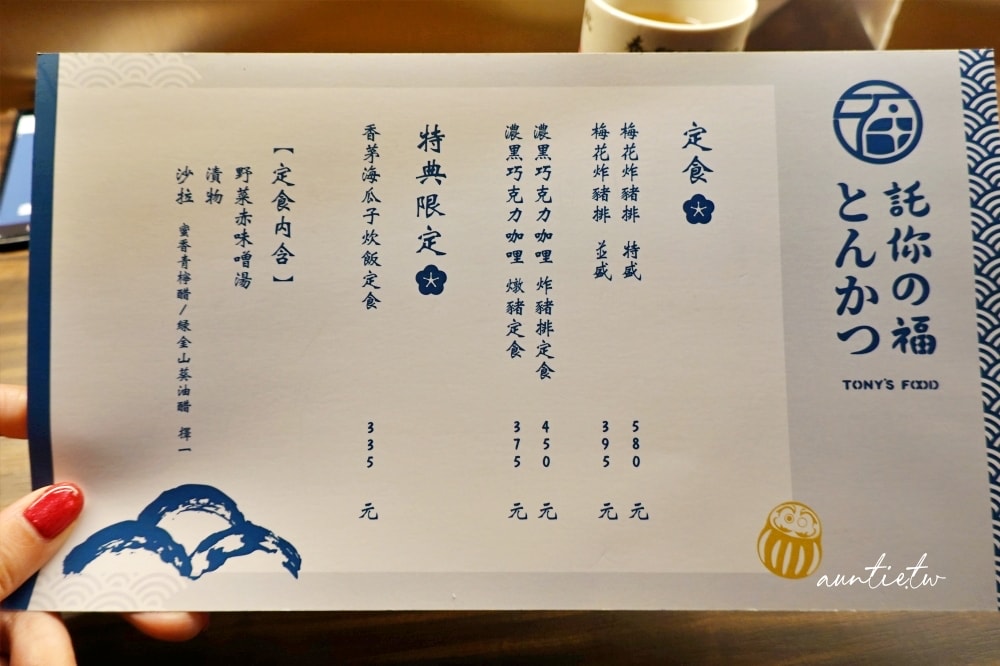 託你の福
とんかつ
TONY'S FOOD
定食
梅花炸豬排 特盛 580 元
梅花炸豬排 並盛 395 元
濃黑巧克力咖哩 炸豬排定食 450 元
濃黑巧克力咖哩 燉豬定食 375 元
特典限定
香茅海瓜子炊飯定食 335 元
【定食內含】
野菜赤味噌湯
漬物
沙拉 蜜香青梅醋/綠金山葵油醋 擇一
auntie.tw